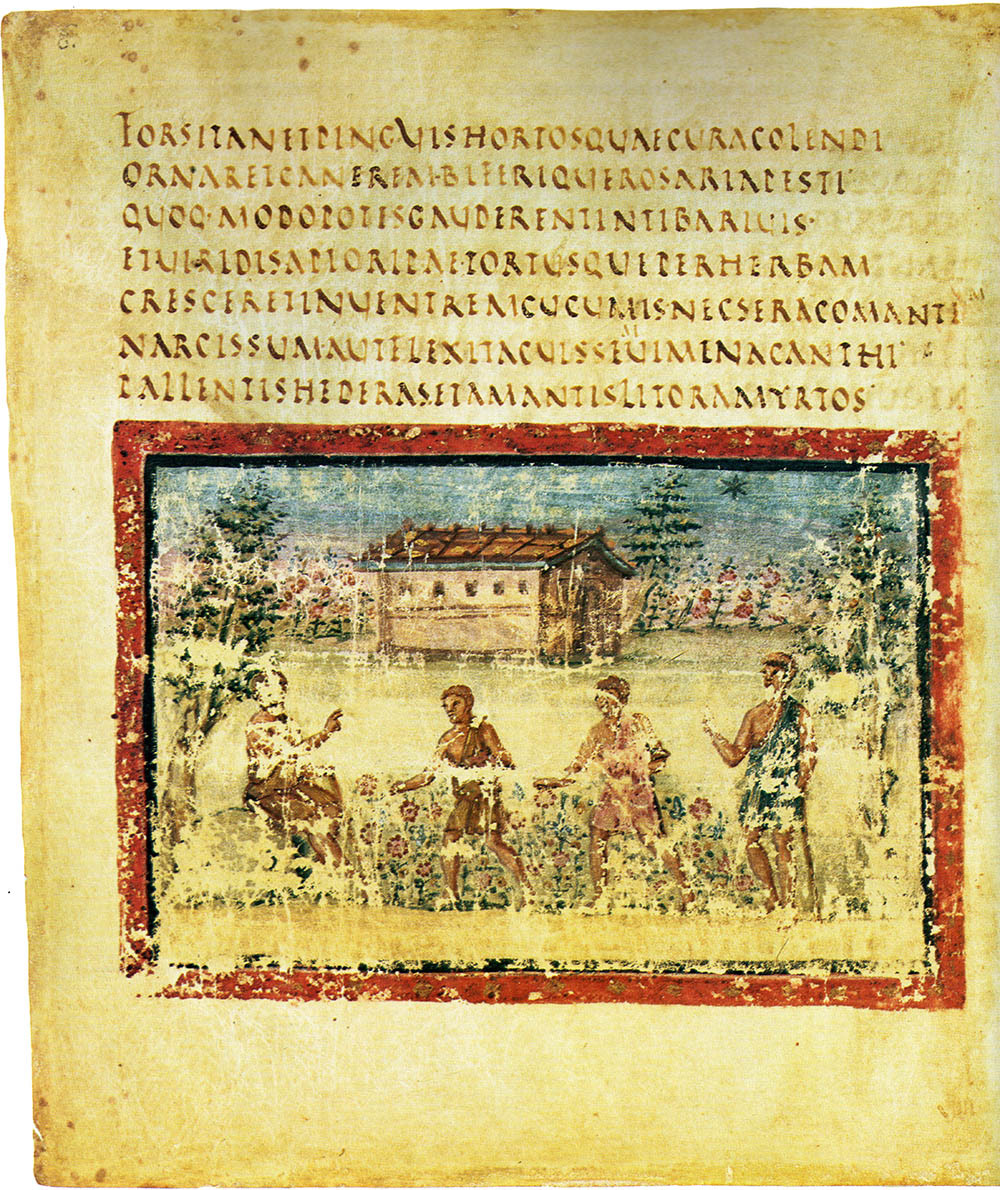 FORSITANETPINGUISHORTOSQUAECURACOLENDI
ORNARETCANEREM·BIFERIQUEROSARIAPESTI
QUOQ·MODOPOTISGAUDERENTINTIBARIUIS·
ETUIRIDISAPIORIPAETORTUSQUEPERHERBAM
CRESCERETINUENTREMCUCUMISNECSERACOMANTEM
NARCISSUMAUTFLEXITACUISSEMUIMENACANTHI
PALLENTISHEDERASETAMANTISLITORAMYRTOS